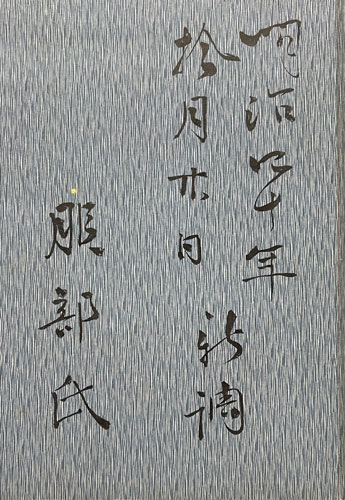 明治四十年
拾月廿日
新調
服部氏